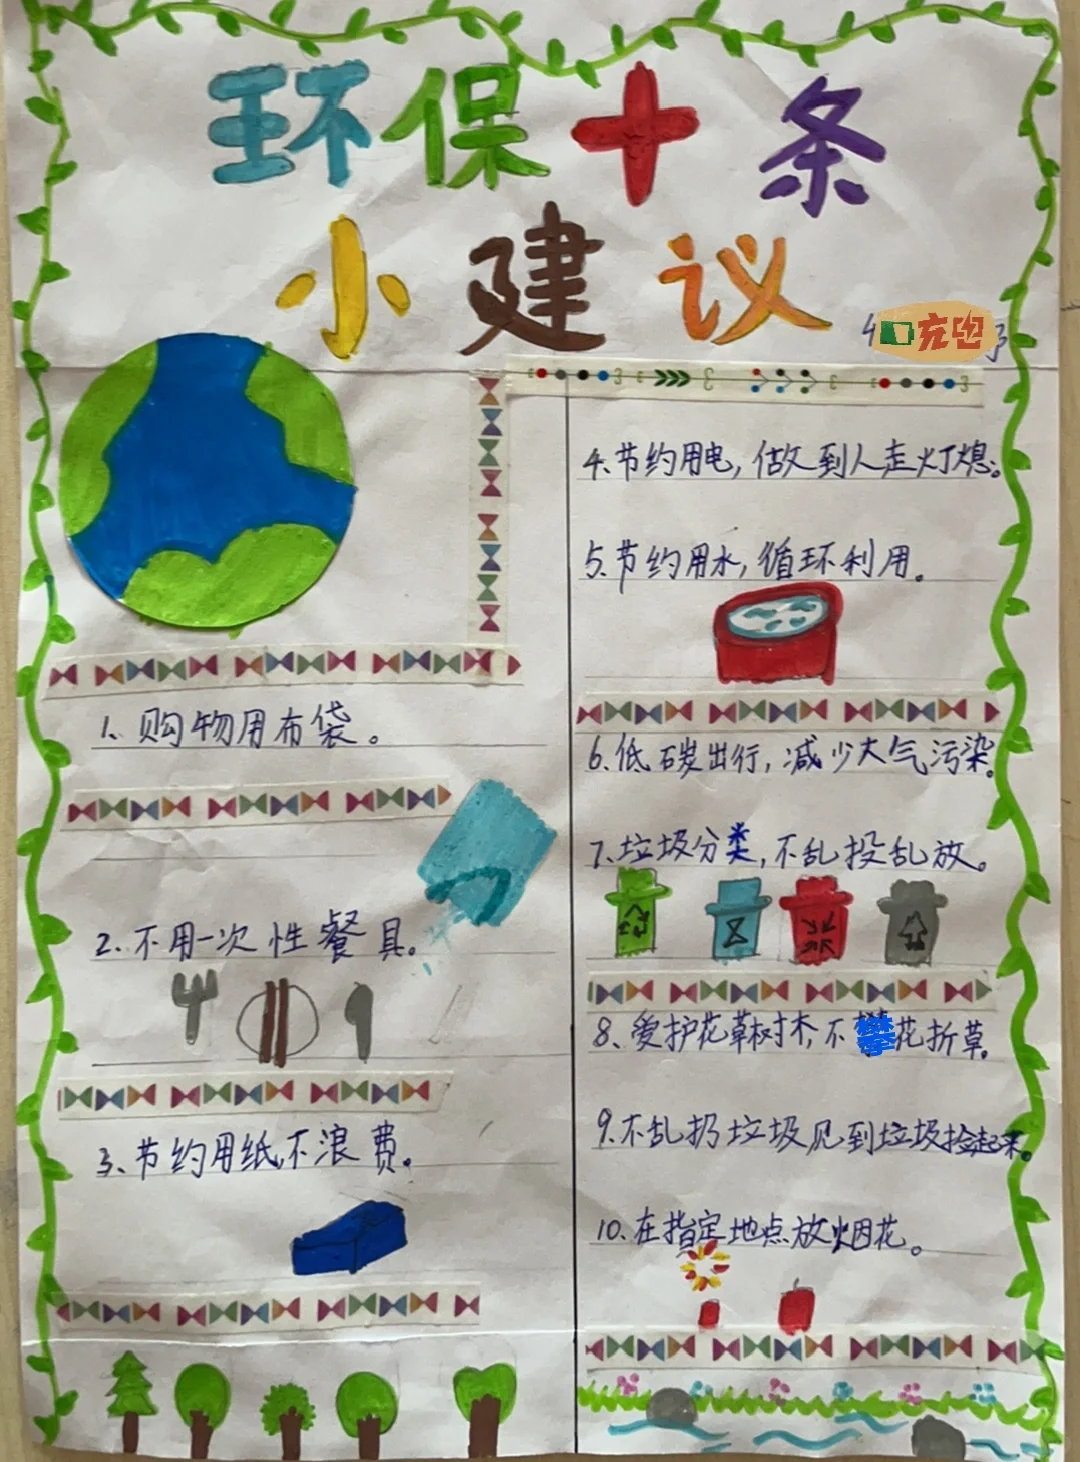 环保十条
小建议
充电
1、购物用布袋。
2、不用一次性餐具。
3、节约用纸,不浪费。
4、节约用电,做到人走灯熄。
5、节约用水,循环利用。
6、低碳出行,减少大气污染。
7、垃圾分类,不乱投乱放。
8、爱护花草树木,不攀花折草。
9、不乱扔垃圾见到垃圾捡起来。
10、在指定地点放烟花。